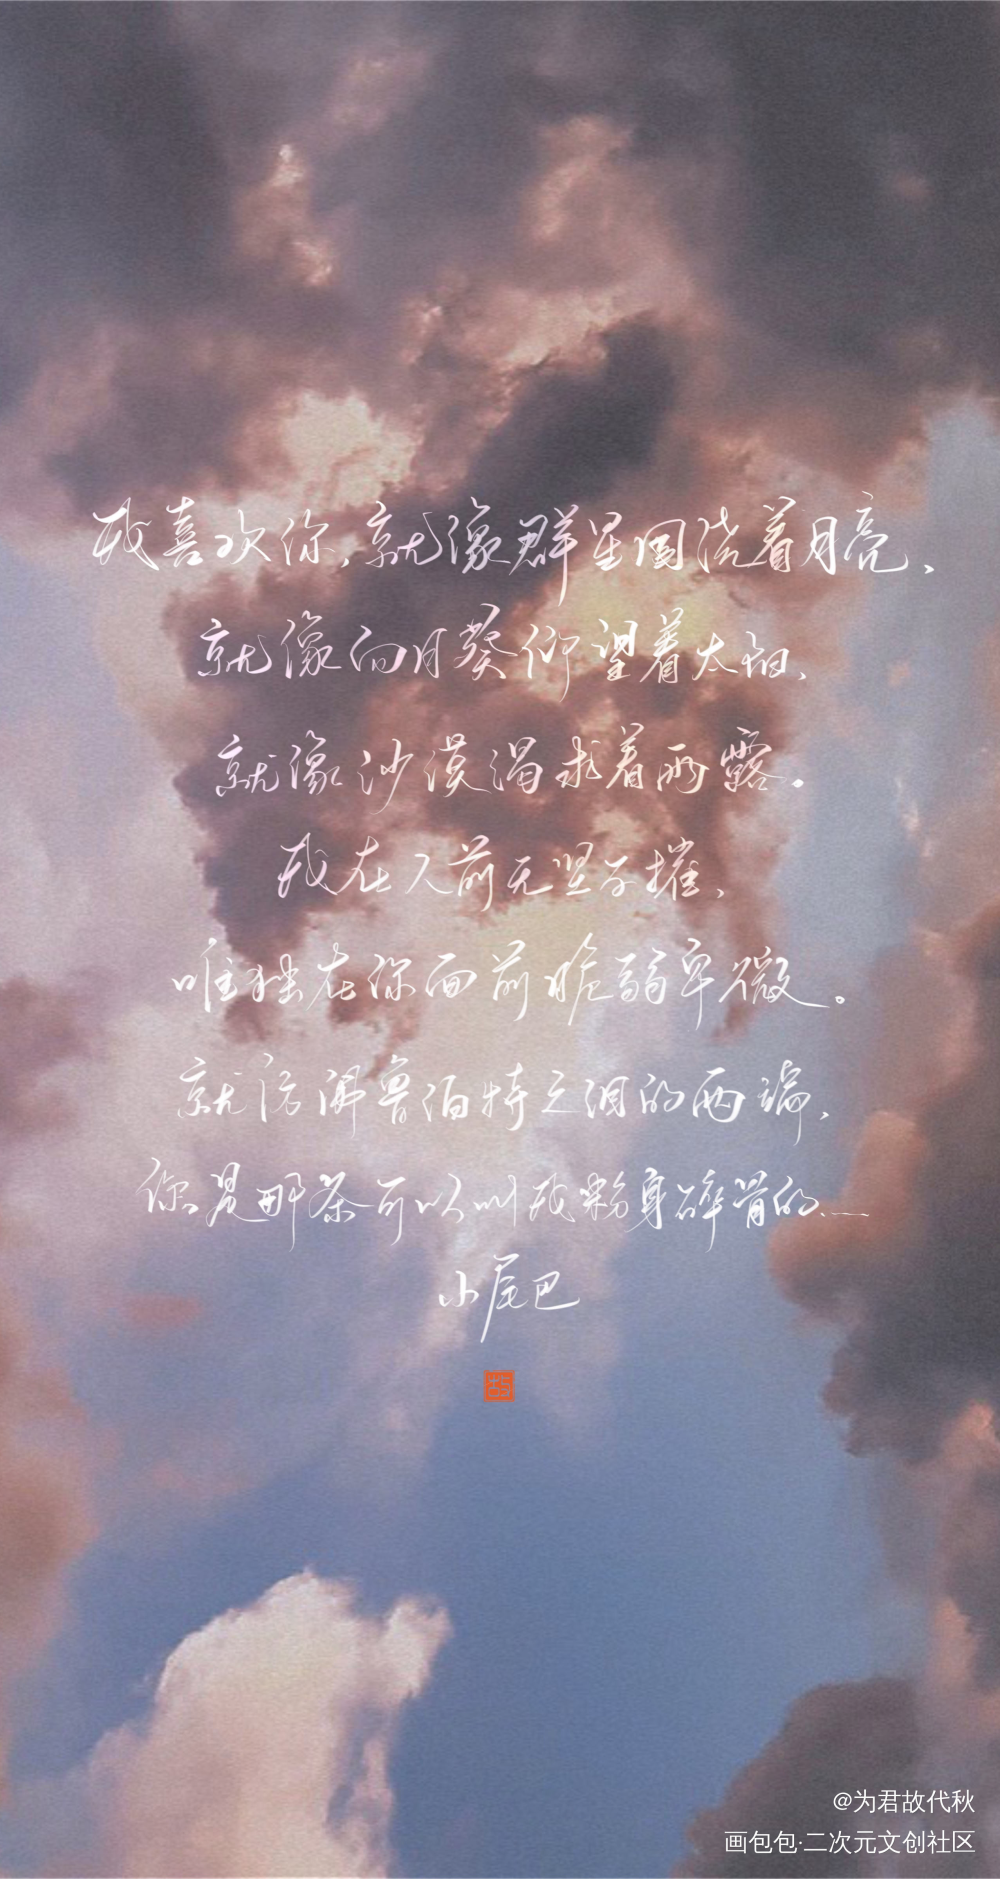 我喜欢你，就像群星围绕着月亮、
就像向日葵仰望着太阳、
就像沙漠渴求着雨露。
我在人前无坚不摧，
唯独在你面前脆弱卑微。
就仿佛鲁伯特之泪的两端，
你是那条可以叫我粉身碎骨的……
小尾巴
@为君故代秋
画包包·二次元文创社区